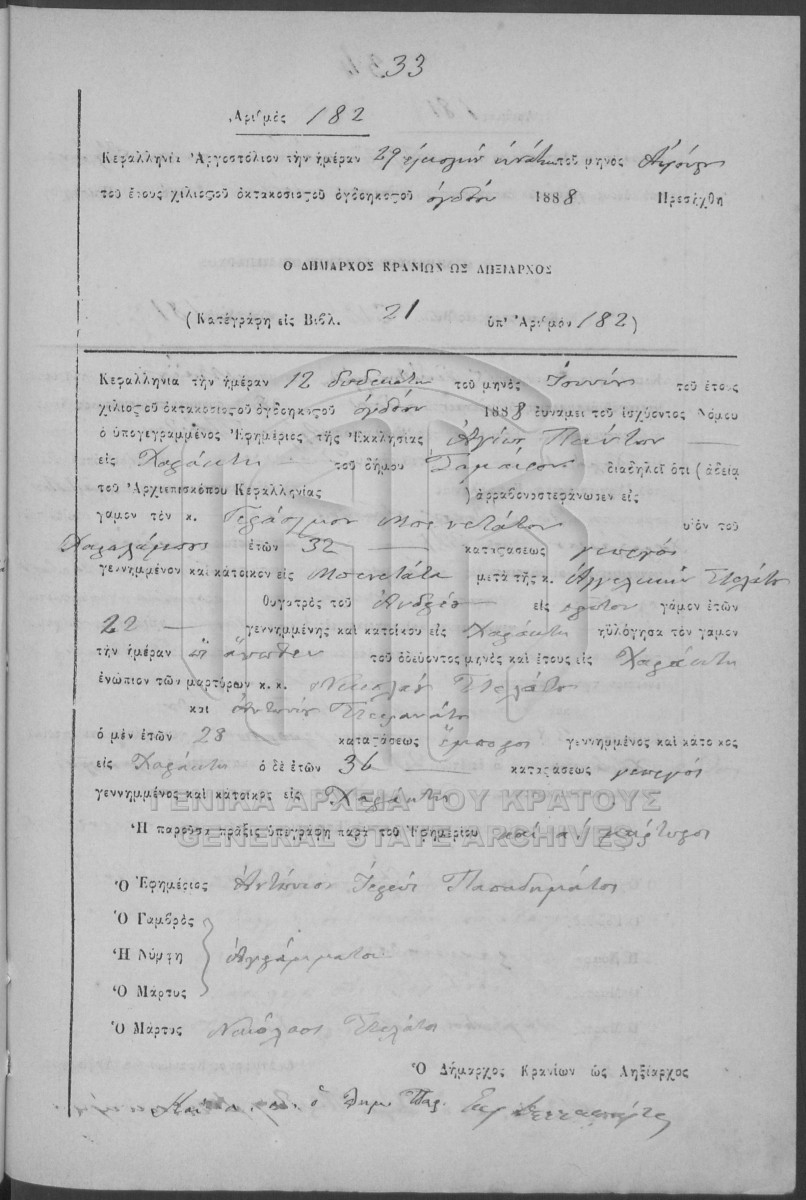 33
Ἀριθμὸς 182
Κεφαλληνία Ἀργοστόλιον τὴν ἡμέραν 29 τοῦ μηνὸς
τοῦ ἔτους χιλιοστοῦ ὀκτακοσιοστοῦ ὀγδοηκοστοῦ ὀγδόου 1888 Πρεσήχθη
Ο ΔΗΜΑΡΧΟΣ ΚΡΑΝΙΩΝ ΩΣ ΛΗΞΙΑΡΧΟΣ
(Κατεγράφη εἰς Βιβλ. 21 ὑπ' Ἀριθμὸν 182)
Κεφαλληνία τὴν ἡμέραν 12 δωδεκάτη τοῦ μηνὸς Ἰουνίου τοῦ ἔτους
χιλιοστοῦ ὀκτακοσιοστοῦ ὀγδοηκοστοῦ ὀγδόου 1888 δυνάμει τοῦ ἰσχύοντος Νόμου
ὁ ὑπογεγραμμένος Ἐφημέριος τῆς Ἐκκλησίας Ἁγίων Πάντων
εἰς Χαράκτη τοῦ δήμου Σαμαίων διαδηλεῖ ὅτι (ἀδείᾳ
τοῦ Ἀρχιεπισκόπου Κεφαλληνίας ) ἀρραβωνοστεφάνωσεν εἰς
γάμον τὸν κ. Γεράσιμον Μπενετάτον υἱὸν τοῦ
Χαραλάμπους ἐτῶν 32 καταστάσεως γεωργὸς
γεννημμένον καὶ κάτοικον εἰς Μπενετάτα μετὰ τῆς κ. Ἀγγελικῆν
θυγατρὸς τοῦ Ἀνδρέα εἰς πρῶτον γάμον ἐτῶν
22 γεννημμένης καὶ κατοίκου εἰς Χαράκτη ηὐλόγησα τὸν γάμον
τὴν ἡμέραν ἄνωθεν τοῦ ὁδεύοντος μηνὸς καὶ ἔτους εἰς Χαράκτη
ἐνώπιον τῶν μαρτύρων κ. κ. Νικολάου
καὶ Ἀντωνίου
ὁ μὲν ἐτῶν 28 καταστάσεως ἔμπορος γεννημμένος καὶ κάτοικος
εἰς Χαράκτη ὁ δὲ ἐτῶν 36 καταστάσεως γεωργὸς
γεννημμένος καὶ κάτοικος εἰς Χαράκτη
ΓΕΝΙΚΑ ΑΡΧΕΙΑ ΤΟΥ ΚΡΑΤΟΥΣ
GENERAL STATE ARCHIVES
Ἡ παροῦσα πρᾶξις ὑπεγράφη παρὰ τοῦ Ἐφημερίου καὶ οἱ μάρτυροι
Ὁ Ἐφημέριος Ἀντώνιος Ἱερεὺς
Ὁ Γαμβρὸς
Ἡ Νύμφη Ἀγράμματοι
Ὁ Μάρτυς
Ὁ Μάρτυς Νικόλαος
Ὁ Δήμαρχος Κρανίων ὡς Ληξίαρχος
ὁ Δημ. Παρ.